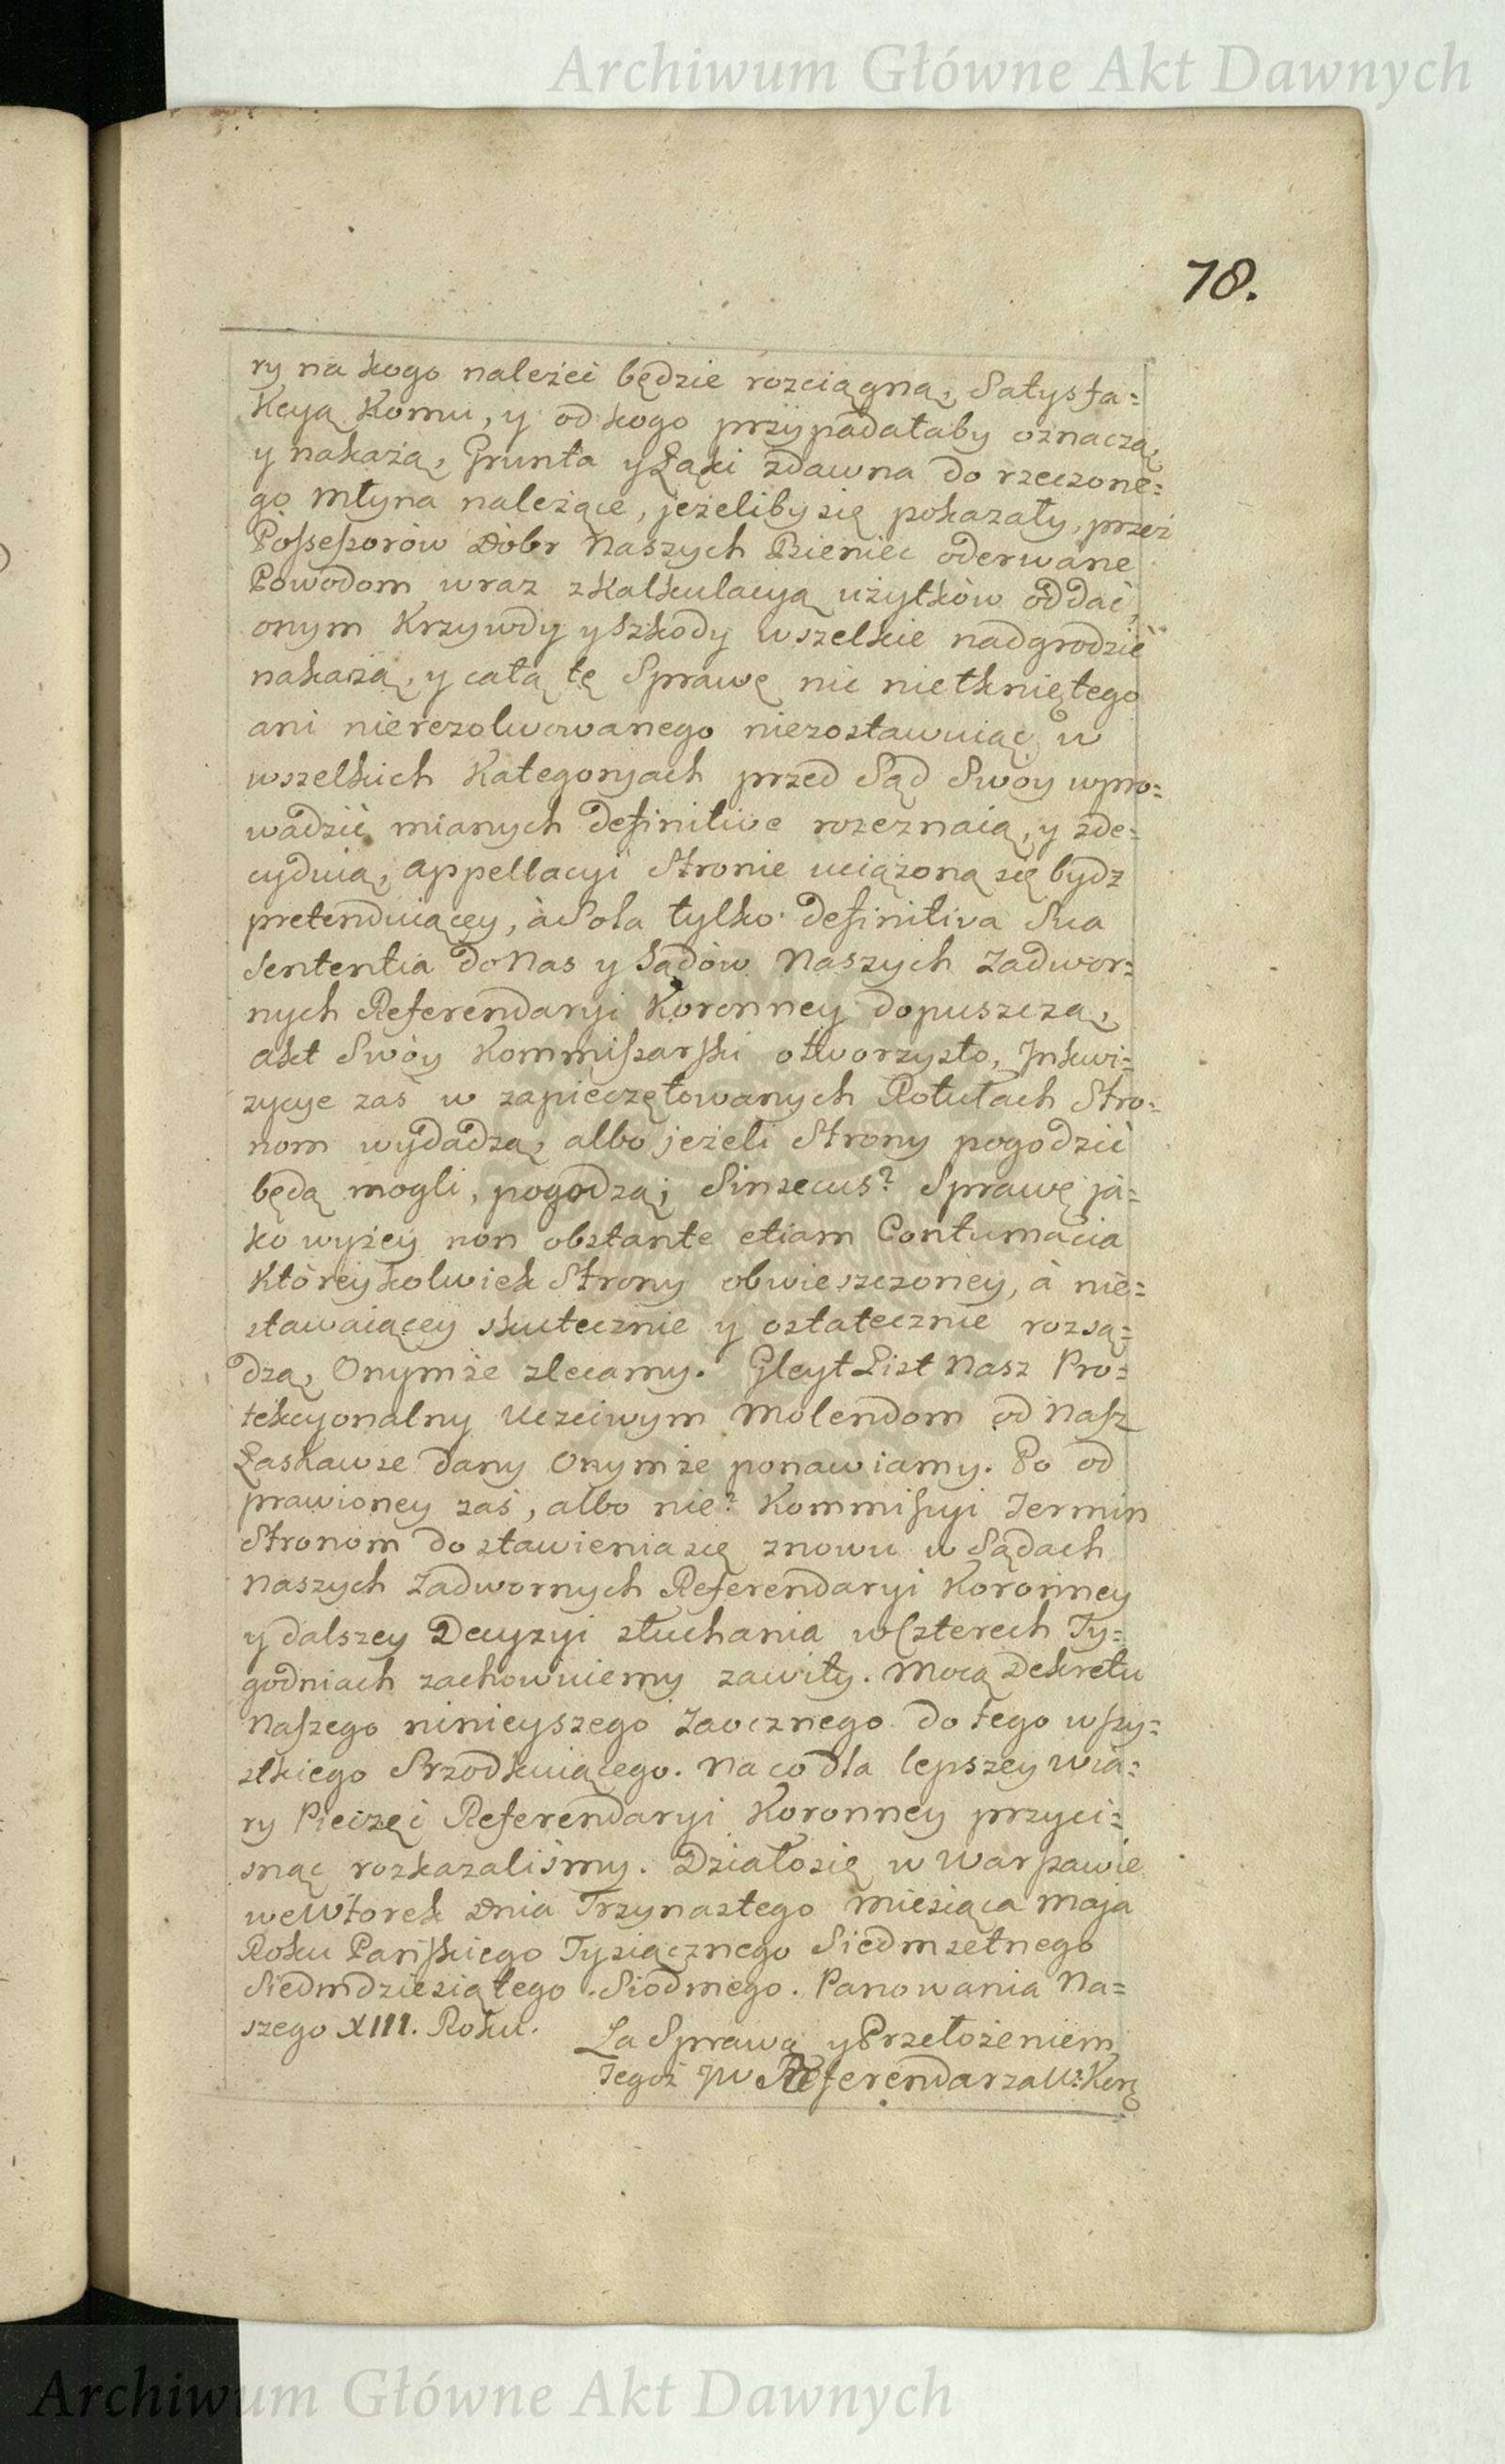 Archiwum Główne Akt Dawnych
78.
ry na kogo należeć będzie rozciągną, Satysfa=
kcyą komu, y od kogo przypadałaby oznaczą,
y nakażą, Grunta y Łąki zdawna do rzeczone=
go Młyna należące, jeżeliby się pokazały, przez
Possessorów Dóbr Naszych Bieniec oderwane
Powodom wraz z Kalkulacyą użytków oddać,
onym Krzywdy y Szkody wszelkie nadgrodzić
nakażą, y całą tę Sprawę nic nietkniętego
ani nierezolwowanego niezostawuiąc w
wszelkich Kategoryach przed Sąd Swóy wpro=
wadzić mianych definitive rozeznaią, y zde=
cyduią, appellacyi Stronie uciążoną się bydz
pretenduiącey, à Sola tylko definitiva Sua
Sententia do Nas y Sądów Naszych Zadwor=
nych Referendaryi Koronney dopuszczą,
akt Swóy Kommissarski otworzysto, Inkwi=
zycye zaś w zapieczętowanych Rotułach Stro=
nom wydadzą, albo jeżeli Strony pogodzić
będą mogli, pogodzą; Sinsecus? Sprawę ja=
ko wyżey non obstante etiam Contumacia
któreykolwiek Strony obwieszczoney, à nie=
stawaiącey skutecznie y ostatecznie rozsą=
dzą, Onymże zlecamy. Gleyt List Nasz Pro=
tekcyonalny Uczciwym Molendom od Nasz
Łaskawie dany Onymże ponawiamy. Po od
prawioney zaś, albo nie? Kommissyi Termin
Stronom do stawienia się znowu w Sądach
Naszych Zadwornych Referendaryi Koronney
y dalszey Decyzyi słuchania w Czterech Ty=
godniach zachowuiemy zawity. Mocą Dekretu
Naszego ninieyszego Zaocznego do tego wszy=
stkiego Srzodkuiącego. Na co dla lepszey wia=
ry Pieczęć Referendaryi Koronney przyci=
snąć rozkazaliśmy. Działo się w Warszawie
we Wtorek Dnia Trzynastego Miesiąca Maja
Roku Pańskiego Tysiącznego Siedmsetnego
Siedmdziesiątego Siodmego. Panowania Na=
szego XIII. Roku.
Za Sprawą y Przełożeniem
Tegoż JW Referendarza W. Kor:
Archiwum Główne Akt Dawnych